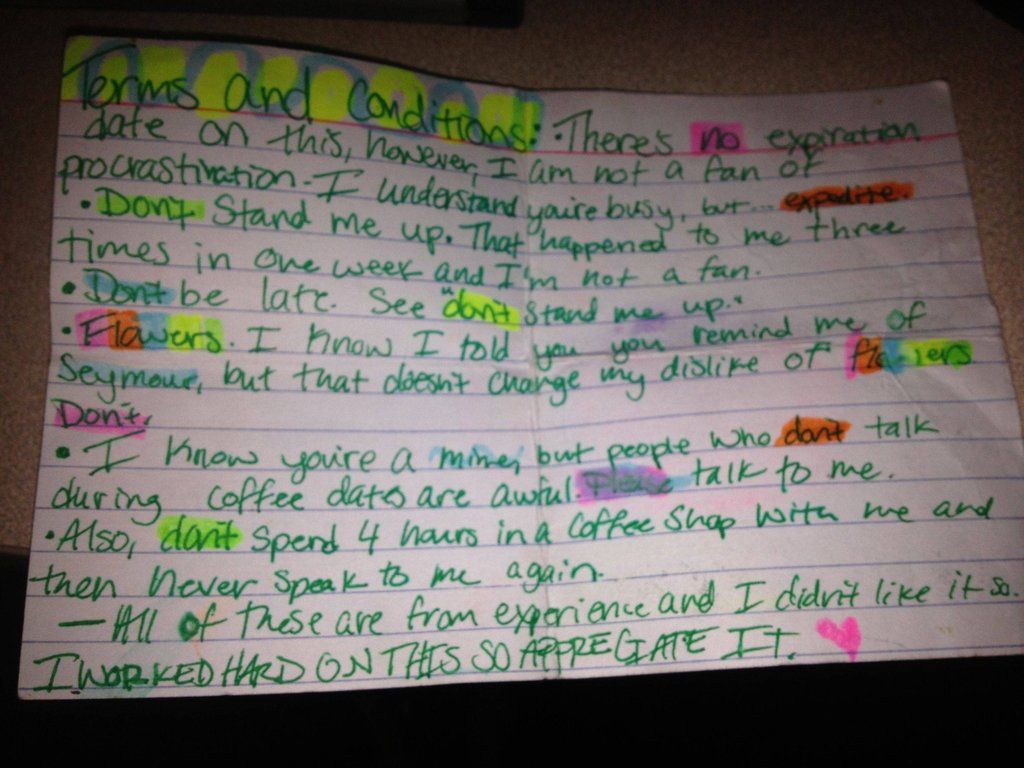 Terms and Conditions: • There's no expiration
date on this, however, I am not a fan of
procrastination. I understand you're busy, but... expedite.
• Don't Stand me up. That happened to me three
times in one week and I'm not a fan.
• Don't be late. See "don't stand me up."
• Flowers. I know I told you you remind me of
Seymour, but that doesn't change my dislike of flowers
Don't.
• I know you're a mime, but people who don't talk
during coffee dates are awful. Please talk to me.
• Also, don't spend 4 hours in a coffee shop with me and
then never speak to me again.
— All of these are from experience and I didn't like it so.
I WORKED HARD ON THIS SO APPRECIATE IT.